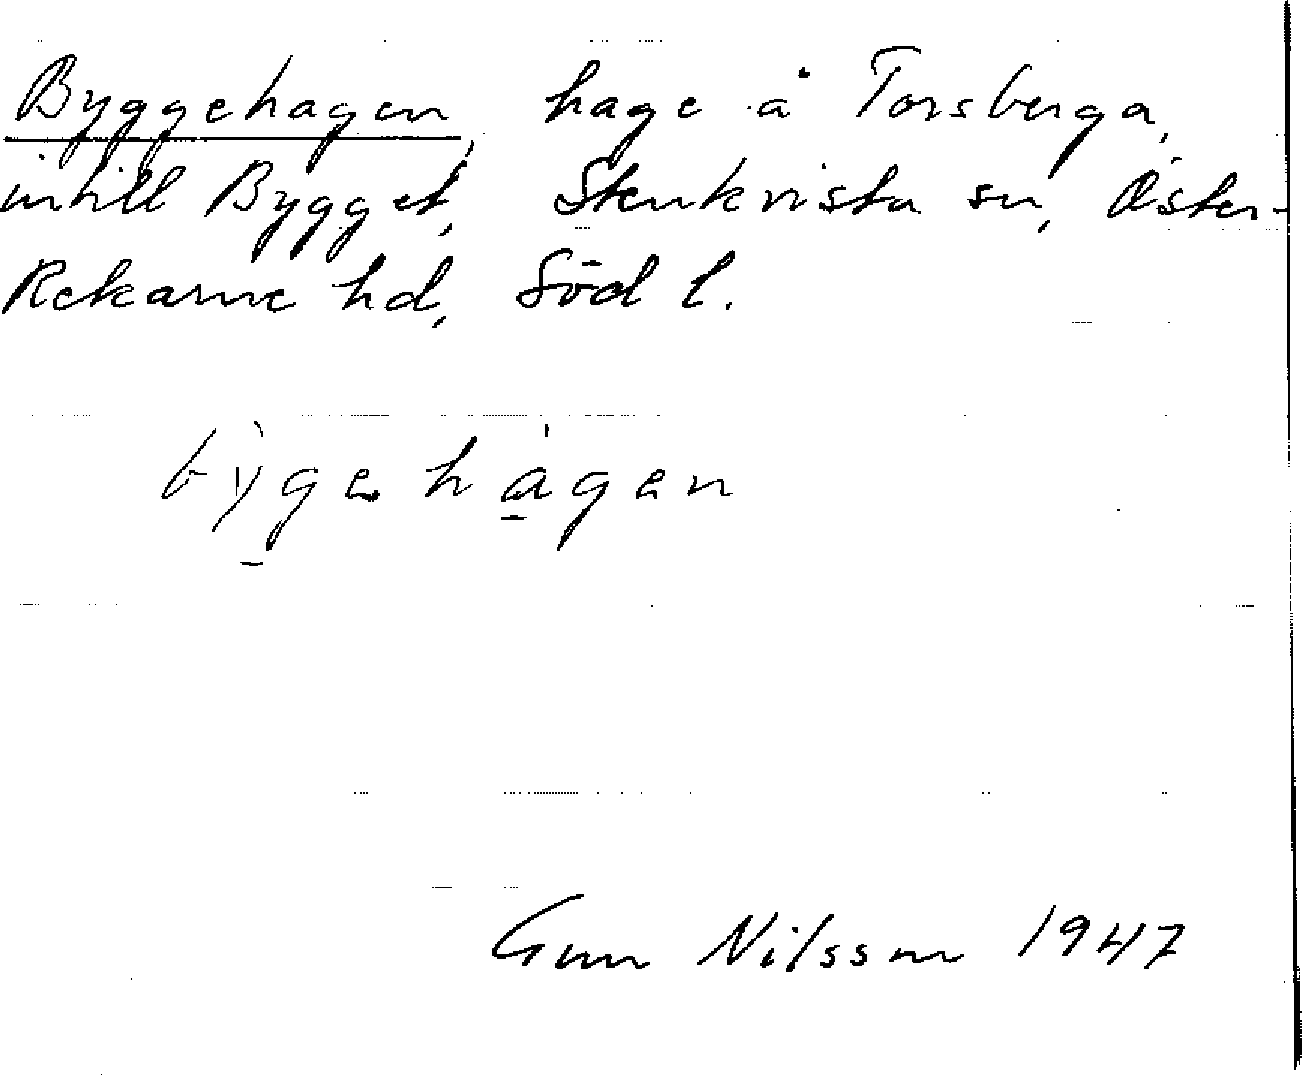 Byggehagen, hage å Torsberga,
intill Bygget, Stenkvista sn, Öster-
Rekarne hd, Söd l.
bỳgehágen
Gun Nilsson 1947